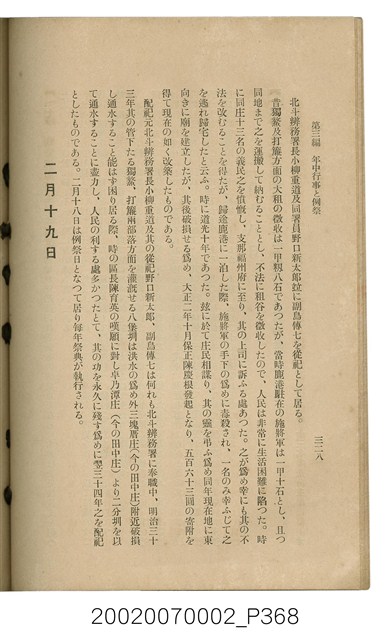 第三編 年中行事と例祭
三二八
北斗辨務署長小柳重道及同署員野口新太郎竝に副島傳七を從祀として居る。
昔獨鰲及打簾方面の大租の徴收は一甲籾八石であつたが、當時鹿港駐在の施將軍は一甲十石とし、且つ
同地まで之を運搬して納むることとし、不法に租谷を徴收したので、人民は非常に生活困難に陷つた。時
に同庄十三名の義民之を憤慨し、支那福州府に至り、其の上司に訴ふる處あつた。之が爲め幸にも其の不
法を改むることを得たが、歸途鹿港に一泊した際、施將軍の手下の爲めに毒殺され、一名のみ幸ふじて之
を逃れ歸宅したと云ふ。時に道光十年であつた。玆に於て庄民相謀り、其の靈を弔ふ爲め同年現在地に東
向きに廟を建立したが、其後破損せる爲め、大正二年十月保正陳炭根發起となり、五百六十三圓の寄附を
得て現在の如く改築したものである。
配祀元北斗辨務署長小柳重道及其の從祀野口新太郎、副島傳七は何れも北斗辨務署に奉職中、明治三十
三年其の管下たる獨鰲、打簾兩部落方面を灌漑せる八堡圳は洪水の爲め外三塊厝庄(今の田中庄)附近破損
し通水すること能はず困り居る際、時の區長陳育英の嘆願に對し卓乃潭庄(今の田中庄)より二分圳を以
て通水することに盡力し、人民の利する處多かつたとて、其の功を永久に殘す爲めに翌三十四年之を配祀
としたものである。二月十八日は例祭日となつて居り毎年祭典が執行される。
二月十九日
20020070002_P368